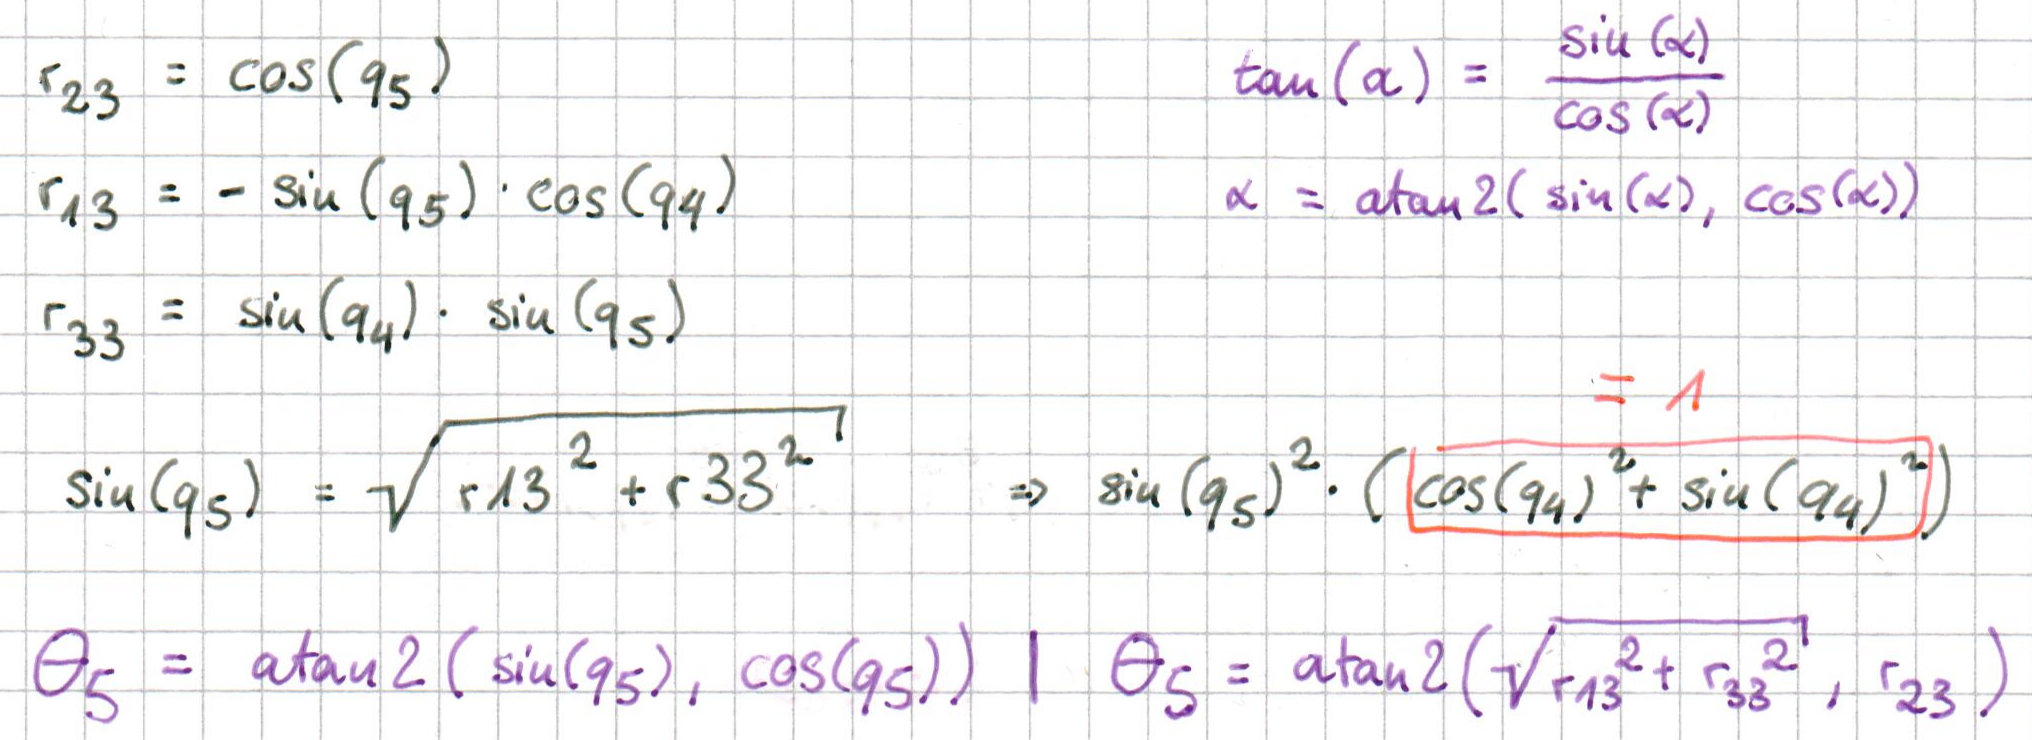 r₂₃ = cos(q₅)
tan(α) = sin(α) / cos(α)
r₁₃ = - sin(q₅) · cos(q₄)
α = atan2(sin(α), cos(α))
r₃₃ = sin(q₄) · sin(q₅)
= 1
sin(q₅) = √(r13² + r33²) ⇒ sin(q₅)² · (cos(q₄)² + sin(q₄)²)
θ₅ = atan2(sin(q₅), cos(q₅)) | θ₅ = atan2(√(r₁₃² + r₃₃²), r₂₃)